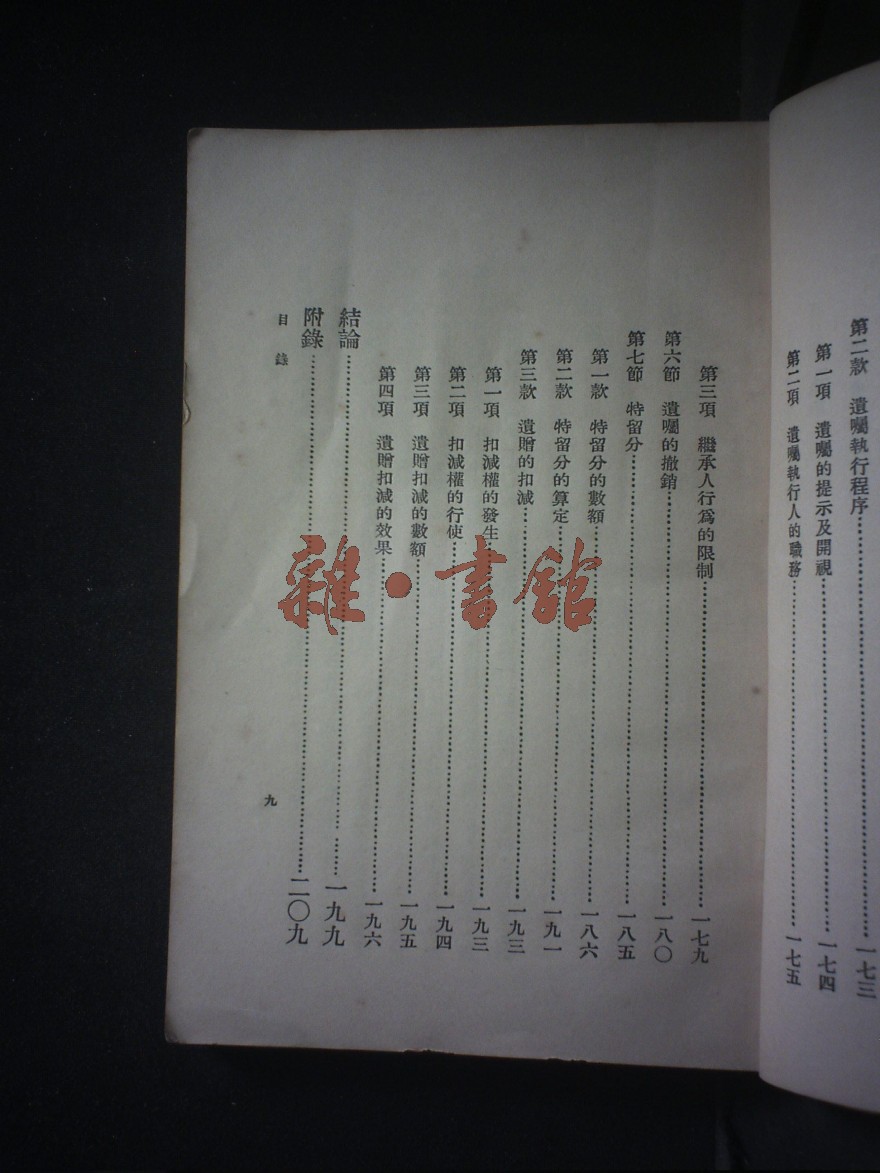 第二款　遺囑執行程序……一七三
第一項　遺囑的提示及開視……一七四
第二項　遺囑執行人的職務……一七五
第三項　繼承人行爲的限制……一七九
第六節　遺囑的撤銷……一八〇
第七節　特留分……一八五
第一款　特留分的數額……一八六
第二款　特留分的算定……一九一
第三款　遺贈的扣減……一九三
第一項　扣減權的發生……一九三
第二項　扣減權的行使……一九四
第三項　遺贈扣減的數額……一九五
第四項　遺贈扣減的效果……一九六
結論……一九九
附錄……二〇九
目錄
九
雜·書館